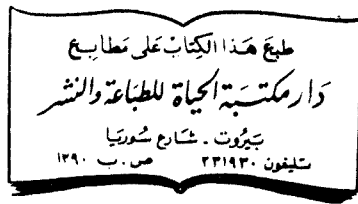 طبع هذا الكتاب على مطابع
دار مكتبة الحياة للطباعة والنشر
بيروت . شارع سوريا
تليفون ٢٣١٩٣٠ ص . ب ١٣٩٠